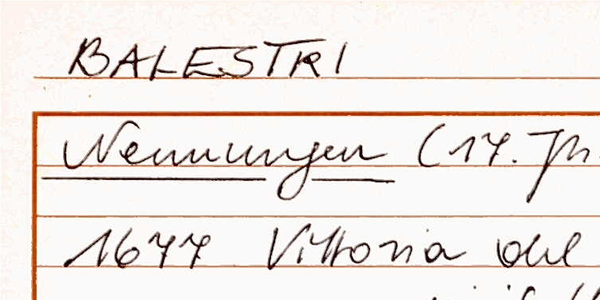 BALESTRI
Nennungen (17. Jh.
1677 Vittoria del